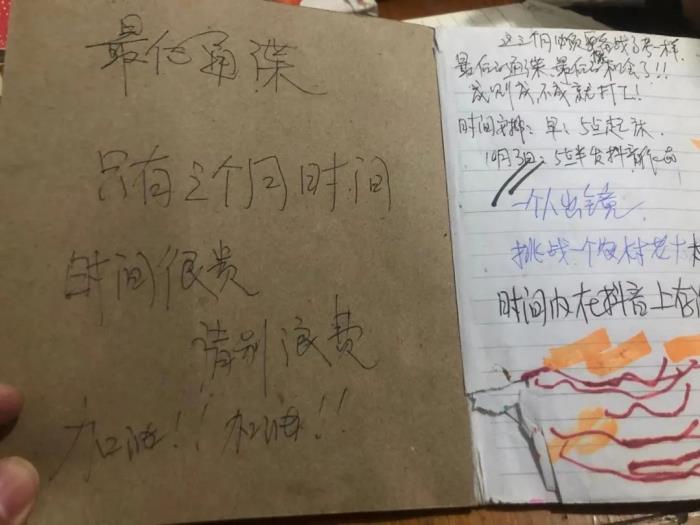 最后通牒
只有三个月时间
时间很贵
请别浪费
加油!! 加油!!
这三个月
最后的通牒、最后的机会了!!
成则成不成就打工!
时间安排: 早: 5点起床.
10月3日: 5点半发抖音作品
一个人出镜.
挑战一个农村老大
时间内在抖音上